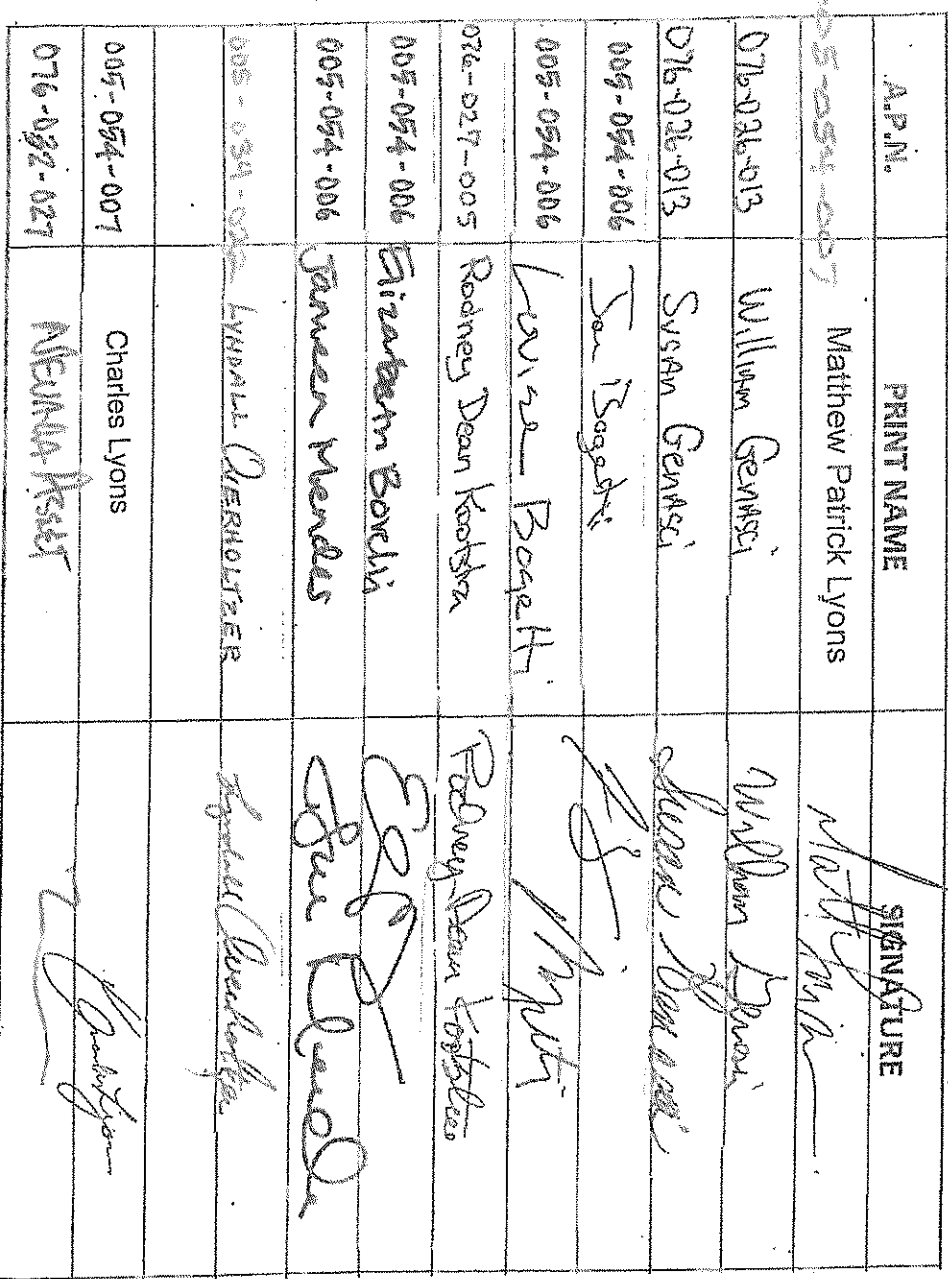 A.P.N. PRINT NAME SIGNATURE
05-054-007 Matthew Patrick Lyons
076-026-013 William Genasci William Genasci
076-026-013 Susan Genasci Susan Genasci
005-054-006 Bogetti
005-054-006 Louise Bogetti
076-027-005 Rodney Dean Kootstra Rodney Dean Kootstra
005-054-006 Elizabeth Borelli
005-054-006 Janeen Mendes
005-054- LYNDALL OVERHOLTZER Lyndall Overholtzer
005-054-007 Charles Lyons Charles Lyons
076-032-027